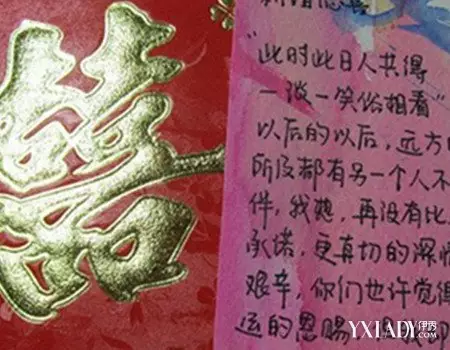 喜
新婚
"此时此日人共得
一 一笑 相看"
以后的以后，远方
所及都有另一个人不
件，我想，再没有比
承诺，更真切的深情
艰辛，你们也许觉得
运的恩赐
YXLADY.com伊秀